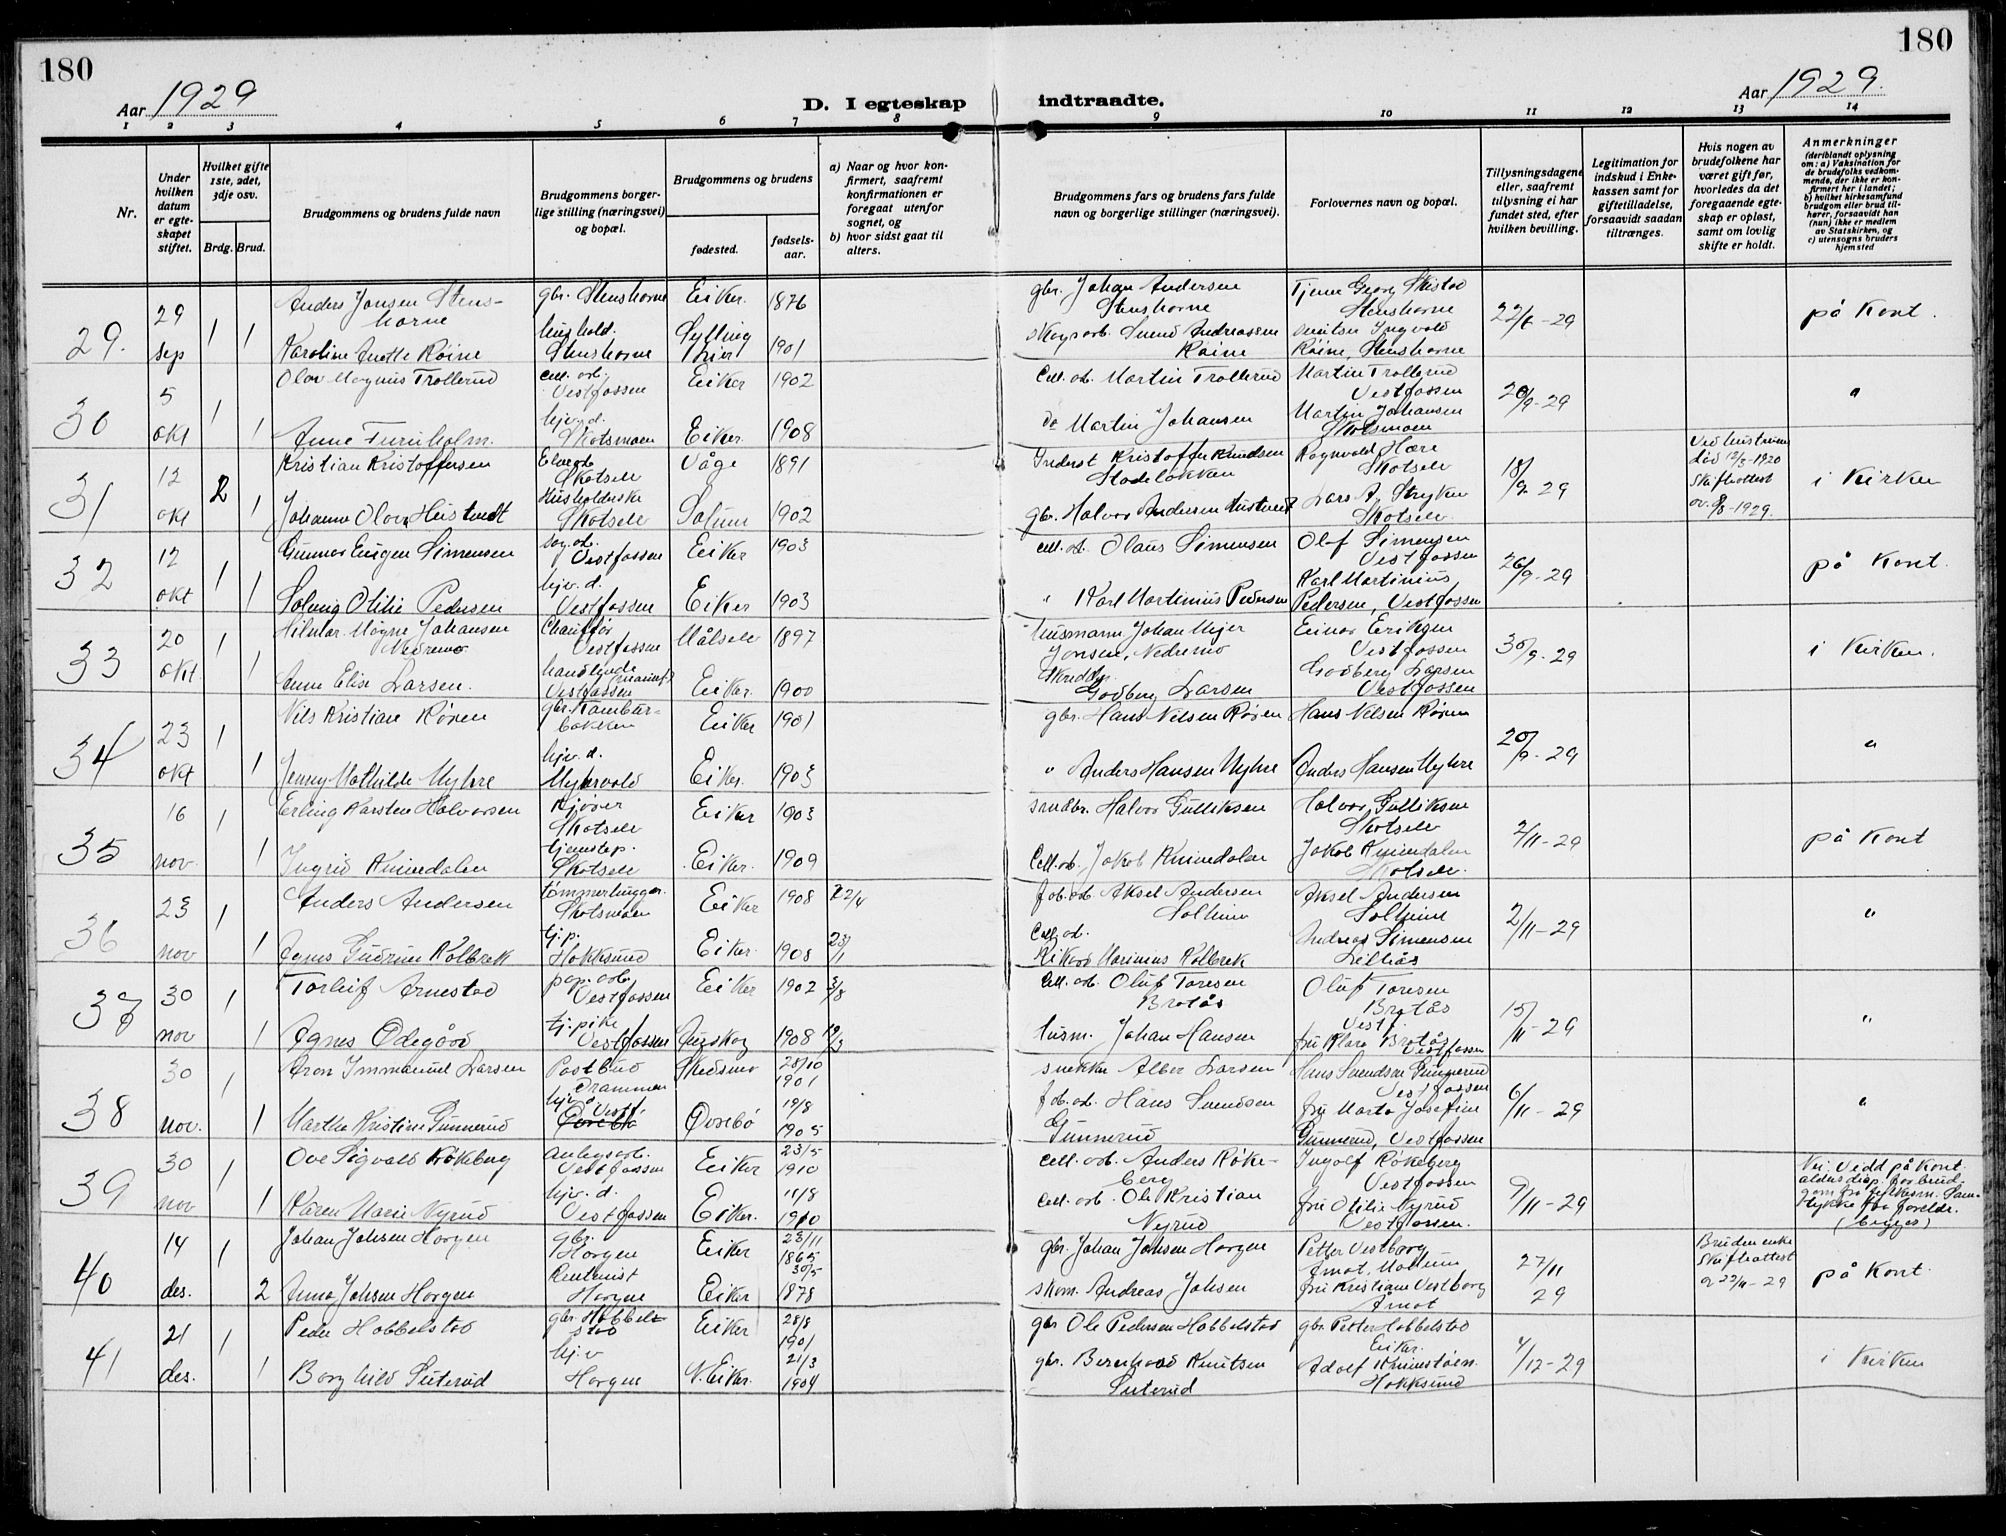 180
180
Aar 1929
D. I egteskap indtraadte.
Aar 1929.
1 2 3 4 5 6 7 8 9 10 11 12 13 14
Nr.
Under hvilken datum er egteskapet stiftet.
Hvilket gifte 1ste, 2det, 3dje osv.
Brdg. Brud.
Brudgommens og brudens fulde navn
Brudgommens borgerlige stilling (næringsvei) og bopæl.
Brudgommens og brudens
fødested.
fødselsaar.
a) Naar og hvor konfirmert, saafremt konfirmationen er foregaat utenfor sognet, og
b) hvor sidst gaat til alters.
Brudgommens fars og brudens fars fulde navn og borgerlige stillinger (næringsvei).
Forlovernes navn og bopæl.
Tillysningsdagene eller, saafremt tillysning ei har fundet sted, efter hvilken bevilling.
Legitimation for indskud i Enkekassen samt for giftetilladelse, forsaavidt saadan tiltrænges.
Hvis nogen av brudefolkene har været gift før, hvorledes da det foregaaende egteskap er opløst, samt om lovlig skifte er holdt.
Anmerkninger
(deriblandt oplysning om: a) Vaksination for de brudefolks vedkommende, der ikke er konfirmert her i landet; b) hvilket kirkesamfund brudgom eller brud tilhører, forsaavidt han (hun) ikke er medlem av Statskirken, og c) utensogns bruders hjemsted
29. 29 sep 1 1
Anders Jonsen Stenshorne gbr. Stenshorne Eiker 1876 gbr. Johan Andersen Stenshorne Georg Skistad Stenshorne 22/6-29 på Kont.
Karoline Anette Røine hushold. Stenshorne Sylling Lier 1901 skogsarb. Svend Andreassen Røine Ingvald Røine, Stenshorne
30 5 okt 1 1
Olav Magnus Trollerud cell. arb. Vestfossen Eiker 1902 Cell. arb. Martin Trollerud Martin Trollerud Vestfossen 20/9-29 "
Anne Furuholm. hjv. d. Skotsmoen Eiker. 1908 do Martin Johansen Martin Johansen Skotsmoen
31 12 okt 2 1
Kristian Kristoffersen Skotselv Vågå 1891 Inderst Kristoffer Knudsen Stadeløkken Ragnvald Hære Skotselv 18/9-29 Ved hustruens død 12/3-1920 Skifteattest av 8/8-1929. i Kirken
Johanne Olava Husholderske Skotselv Solum 1902 gbr. Halvor Andersen Lars A. Stryken Skotselv
32 12 okt 1 1
Gunnar Eugen Simensen Vestfossen Eiker 1903 cell. arb. Olaus Simensen Olaf Simensen Vestfossen 26/9-29 på Kont.
Solveig Otilie Pedersen hjv. d. Vestfossen Eiker 1903 " Karl Martinius Pedersen Karl Martinius Pedersen, Vestfossen
33 20 okt. 1 1
Hilmar Magne Johansen Nedremo Chauffør Vestfossen Målselv 1897 husmann Johan Meyer Jonsen, Nedremo Einar Eriksen Vestfossen 30/9-29 i Kirken.
Anne Elise Larsen. handlende Vestfossen Eiker. 1900 Skredder Godberg Larsen Godberg Larsen Vestfossen
34 23 okt 1 1
Nils Kristian Røren gbr. Kamburbakken Eiker 1901 gbr. Hans Nilsen Røren Hans Nilsen Røren 20/9-29 "
Jenny Mathilde Myhre hjv. d. Myhrvold Eiker. 1903 " Anders Hansen Myhre Anders Hansen Myhre
35 16 nov. 1 1
Erling Karsten Halvorsen Kjører Skotselv Eiker 1903 småbr. Halvor Gulliksen Halvor Gulliksen Skotselv 2/11-29 på Kont
Ingrid Knivedalen tjenestep. Skotselv Eiker. 1909 Cell. arb. Jakob Knivedalen Jakob Knivedalen Skotselv.
36 23 nov 1 1
Anders Andersen tømmerhugger Skotsmoen Eiker 1908 22/4 fab. arb. Aksel Andersen Solheim Aksel Andersen Solheim 2/11-29 "
Agnes Gudrun Kolbrek tj. p. Hokksund Eiker. 1908 23/1 Cell. arb. Rikard Marinius Kolbrek Andreas Simensen Lilleås
37 30 nov 1 1
Torleif Arnestad pap. arb. Vestfossen Eiker 1902 3/8 Cell. arb. Oluf Toresen Brotås Oluf Toresen Brotås Vestf. 15/11-29 "
Agnes Ødegård tj. pike Vestfossen 1908 19/3 husm. Johan Hansen fru Klara Brotås Vestfossen
38 30 nov. 1 1
Aron Immanuel Larsen Postbud Drammen Skedsmo 28/10 1901 snekker Albor Larsen Hans Svendsen Gunnerud Vestfossen 6/11-29 "
Marthe Kristine Gunnerud hjv. d. Vestf. Øvrebø Øvrebø 19/8 1905 fab. arb. Hans Svendsen Gunnerud fru Marta Josefine Gunnerud, Vestfossen
39 30 nov 1 1
Ove Sigvald Røkeberg anlegsarb. Vestfossen Eiker 23/5 1910 cell. arb. Anders Røkeberg Ingolf Røkeberg Vestfossen 9/11-29 Vei. Vedd på Kont. aldersdisp. for brudgom fra fylkesm. Samtykke fra foreldr. (begges)
Karen Marie Nyrud hjv. d. Vestfossen Eiker. 11/8 1910 cell. arb. Ole Kristian Nyrud fru Otilie Nyrud Vestfossen.
40 14 des. 1 2
Johan Johsen Horgen gbr. Horgen Eiker 23/11 1865 gbr. Johan Johsen Horgen Petter Vestborg Åmot, Modum 27/11 29 Bruden enke Skifteattest av 22/11-29 på Kont.
Anna Johsen Horgen Rentenist Horgen Eiker 30/5 1878 skom. Andreas Johsen fru Kristiane Vestborg Åmot
41 21 des. 1 1
Peder Hobbelstad gbr. Hobbelstad Eiker 28/8 1901 gbr Ole Pedersen Hobbelstad gbr. Petter Hobbelstad Eiker. 4/12-29 i Kirken
Borghild Suterud hj. v Horgen N. Eiker. 21/3 1904 gbr. Bernhard Knutsen Suterud Adolf Hokksund